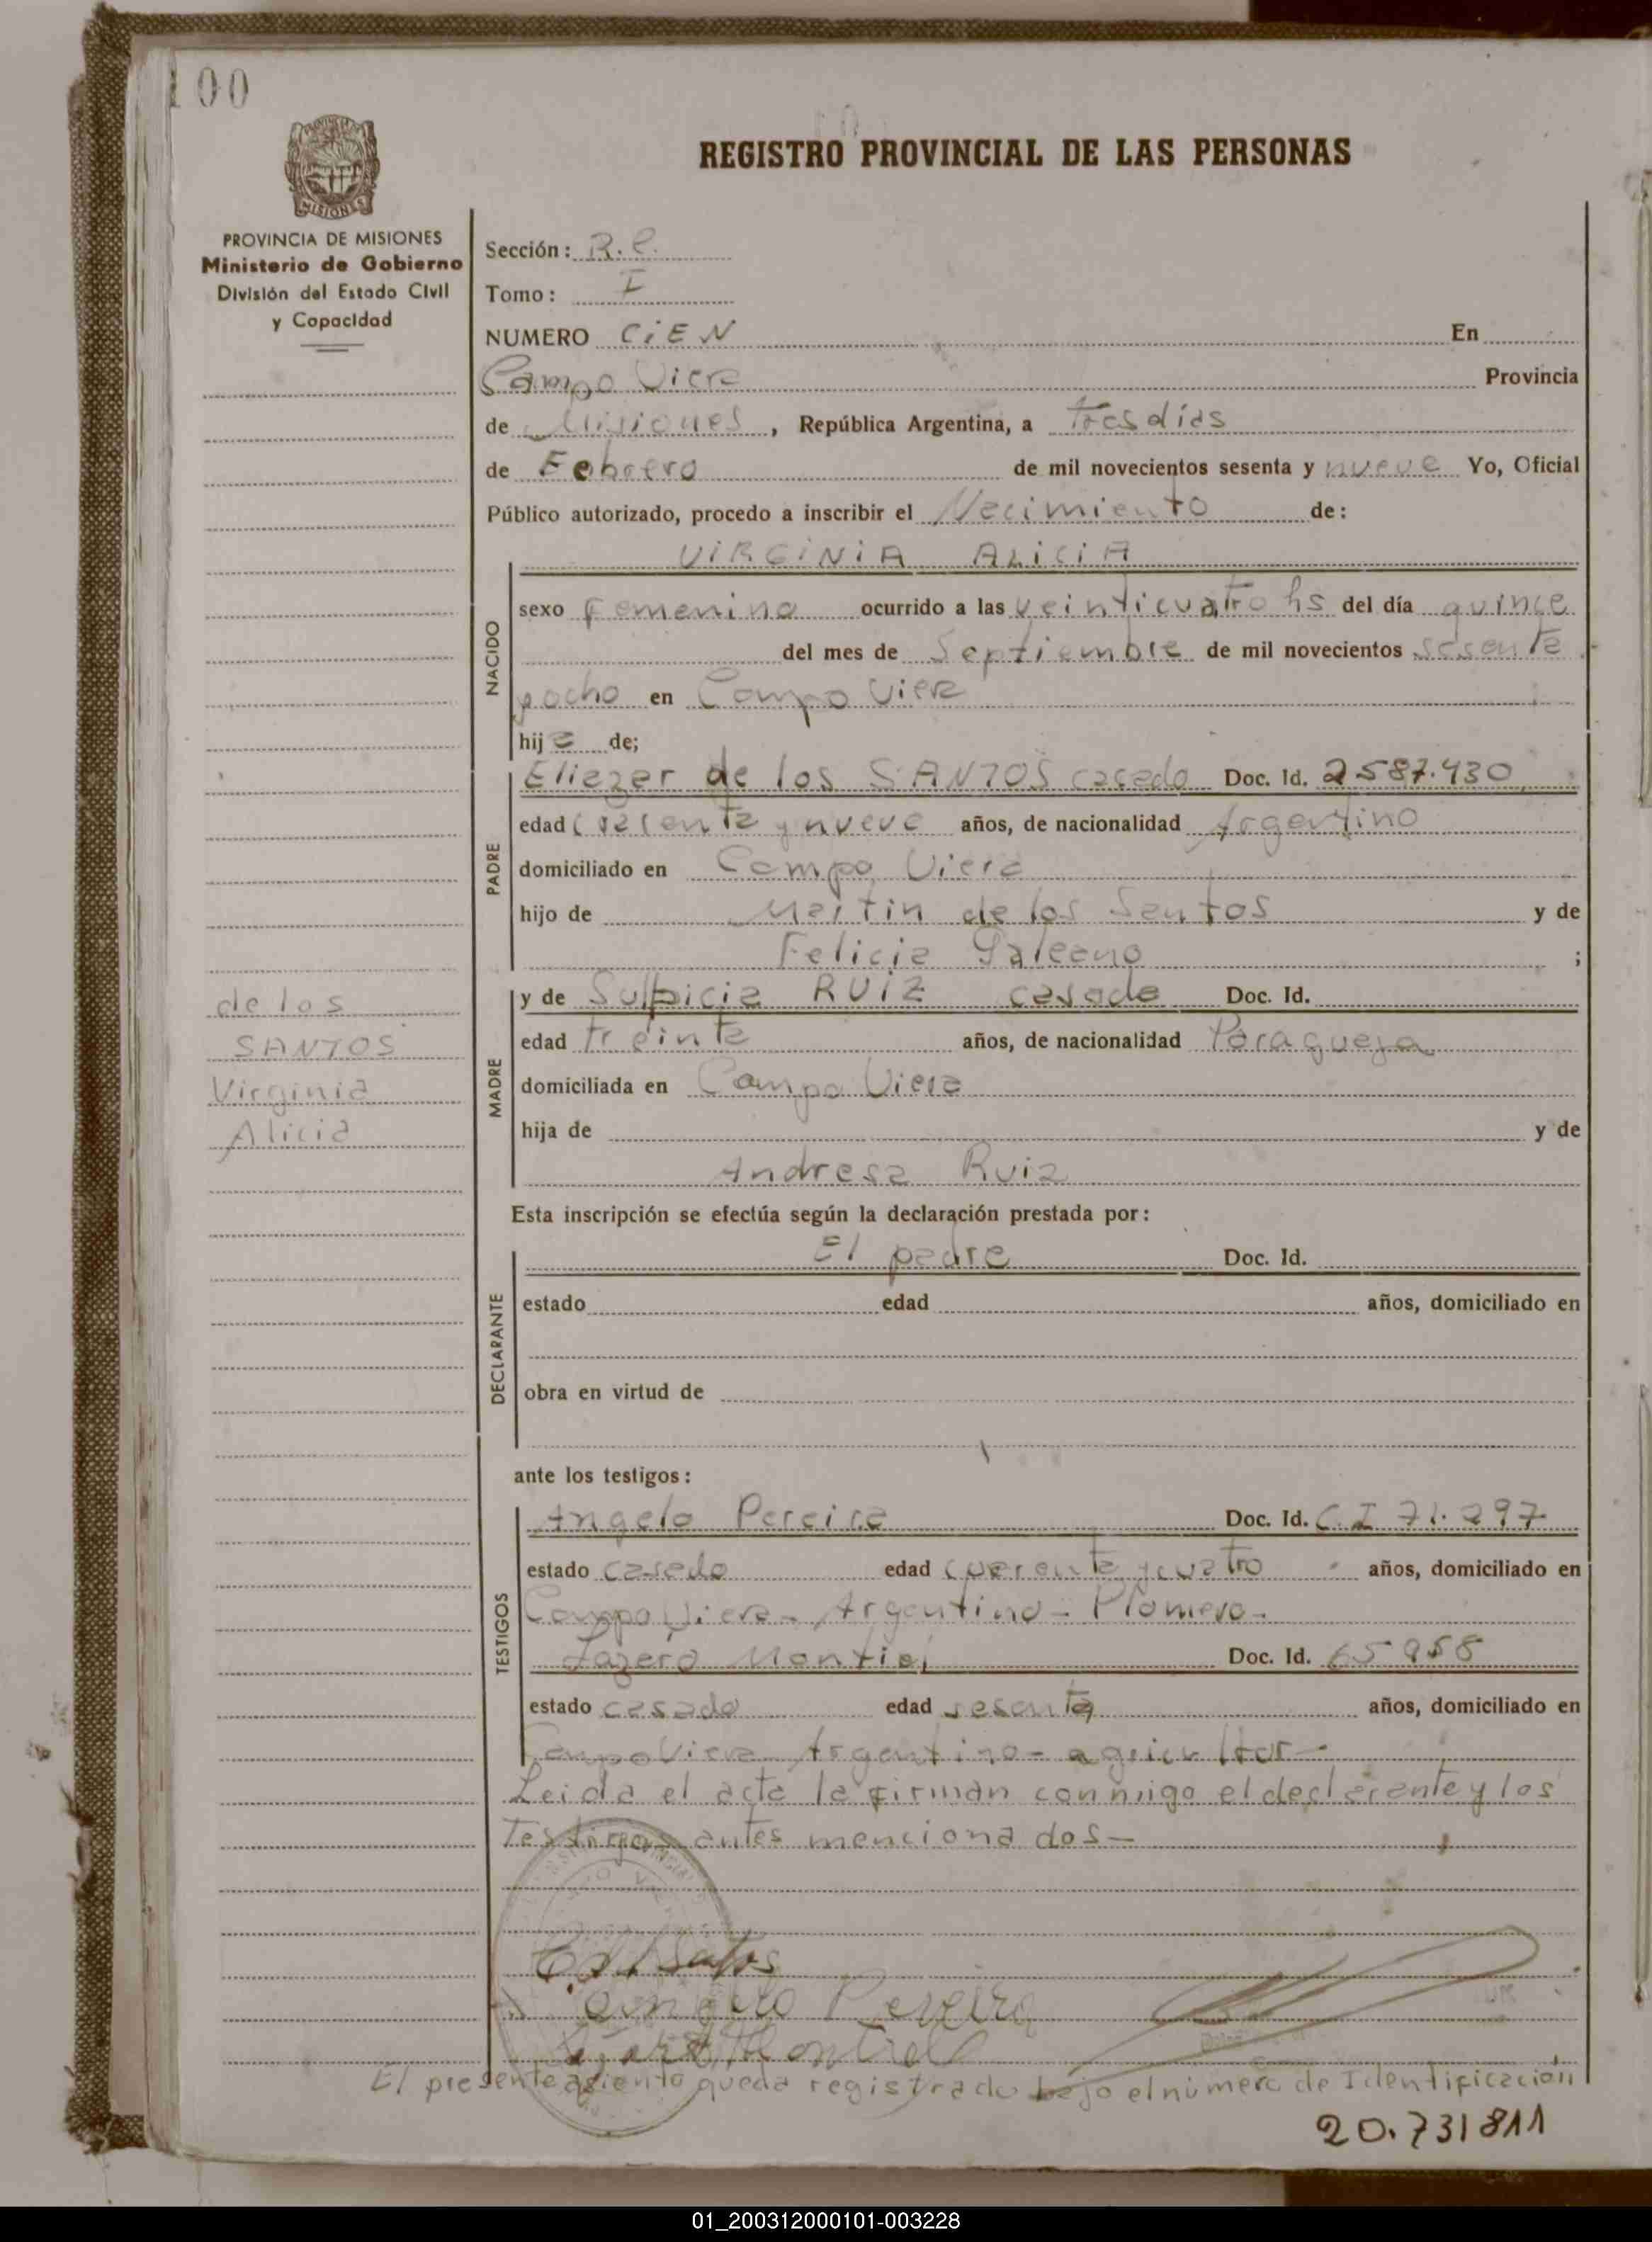 100
REGISTRO PROVINCIAL DE LAS PERSONAS
MISIONES
PROVINCIA DE MISIONES
Ministerio de Gobierno
División del Estado Civil
y Capacidad
Sección: R.C.
Tomo: I
NUMERO CiEN En
Campo Viera Provincia
de Misiones, República Argentina, a tres días
de Febrero de mil novecientos sesenta y nueve Yo, Oficial
Público autorizado, procedo a inscribir el Nacimiento de:
NACIDO
VIRGINIA ALICIA
sexo femenino ocurrido a las veinticuatro hs del día quince
del mes de Septiembre de mil novecientos sesenta
yocho en Campo Viera
hija de;
PADRE
Eliezer de los SANTOS casado Doc. Id. 2587.930
edad cuarenta y nueve años, de nacionalidad Argentino
domiciliado en Campo Viera
hijo de Martin de los Santos y de
Felicia Galeano ;
de los
SANTOS
Virginia
Alicia
MADRE
y de Sulpicia RUIZ casada Doc. Id.
edad treinta años, de nacionalidad Paraguaya
domiciliada en Campo Viera
hija de y de
Andresa Ruiz
Esta inscripción se efectúa según la declaración prestada por:
DECLARANTE
El padre Doc. Id.
estado edad años, domiciliado en
obra en virtud de
ante los testigos:
TESTIGOS
Angelo Pereira Doc. Id. C.I 71.297
estado casado edad cuarenta ycuatro años, domiciliado en
Campo Viera - Argentino - Plomero -
Lazaro Montiel Doc. Id. 65958
estado casado edad sesenta años, domiciliado en
Campo Viera Argentino - agricultor -
Leida el acta la firman conmigo el declarante y los
Testigos antes mencionados -
Santos
Angelo Pereira
Montiel
El presente asiento queda registrado bajo el número de Identificación
20.731811
01_200312000101-003228